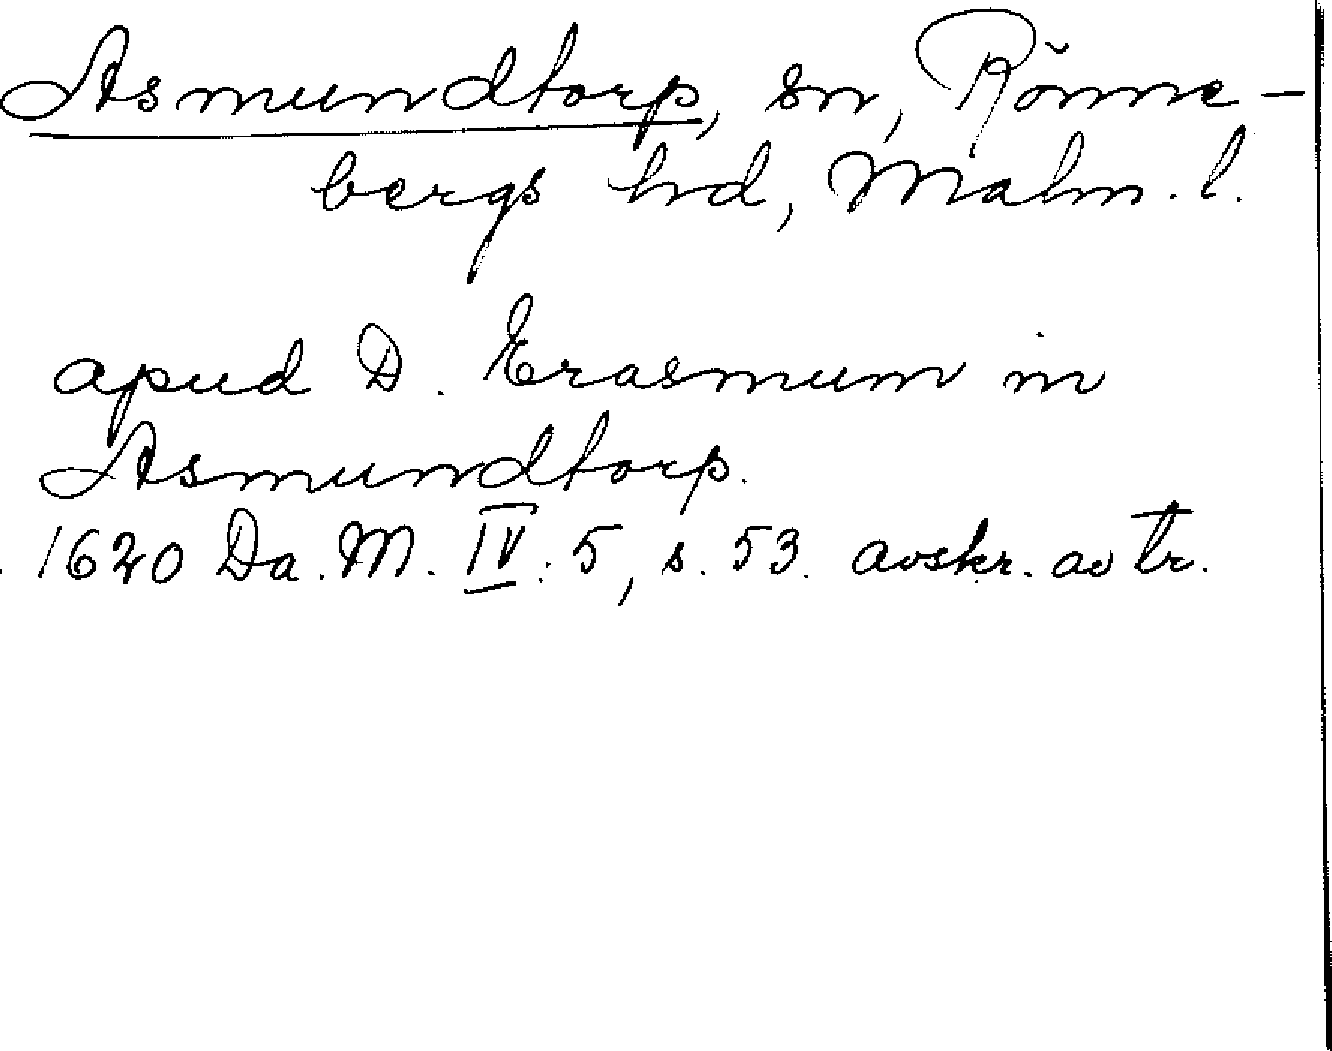 Asmundtorp, sn, Rönne-
bergs hd, Malm. l.
apud D. Erasmum in
Asmundtorp.
1620 Da. M. IV. 5, s. 53. avskr. av tr.